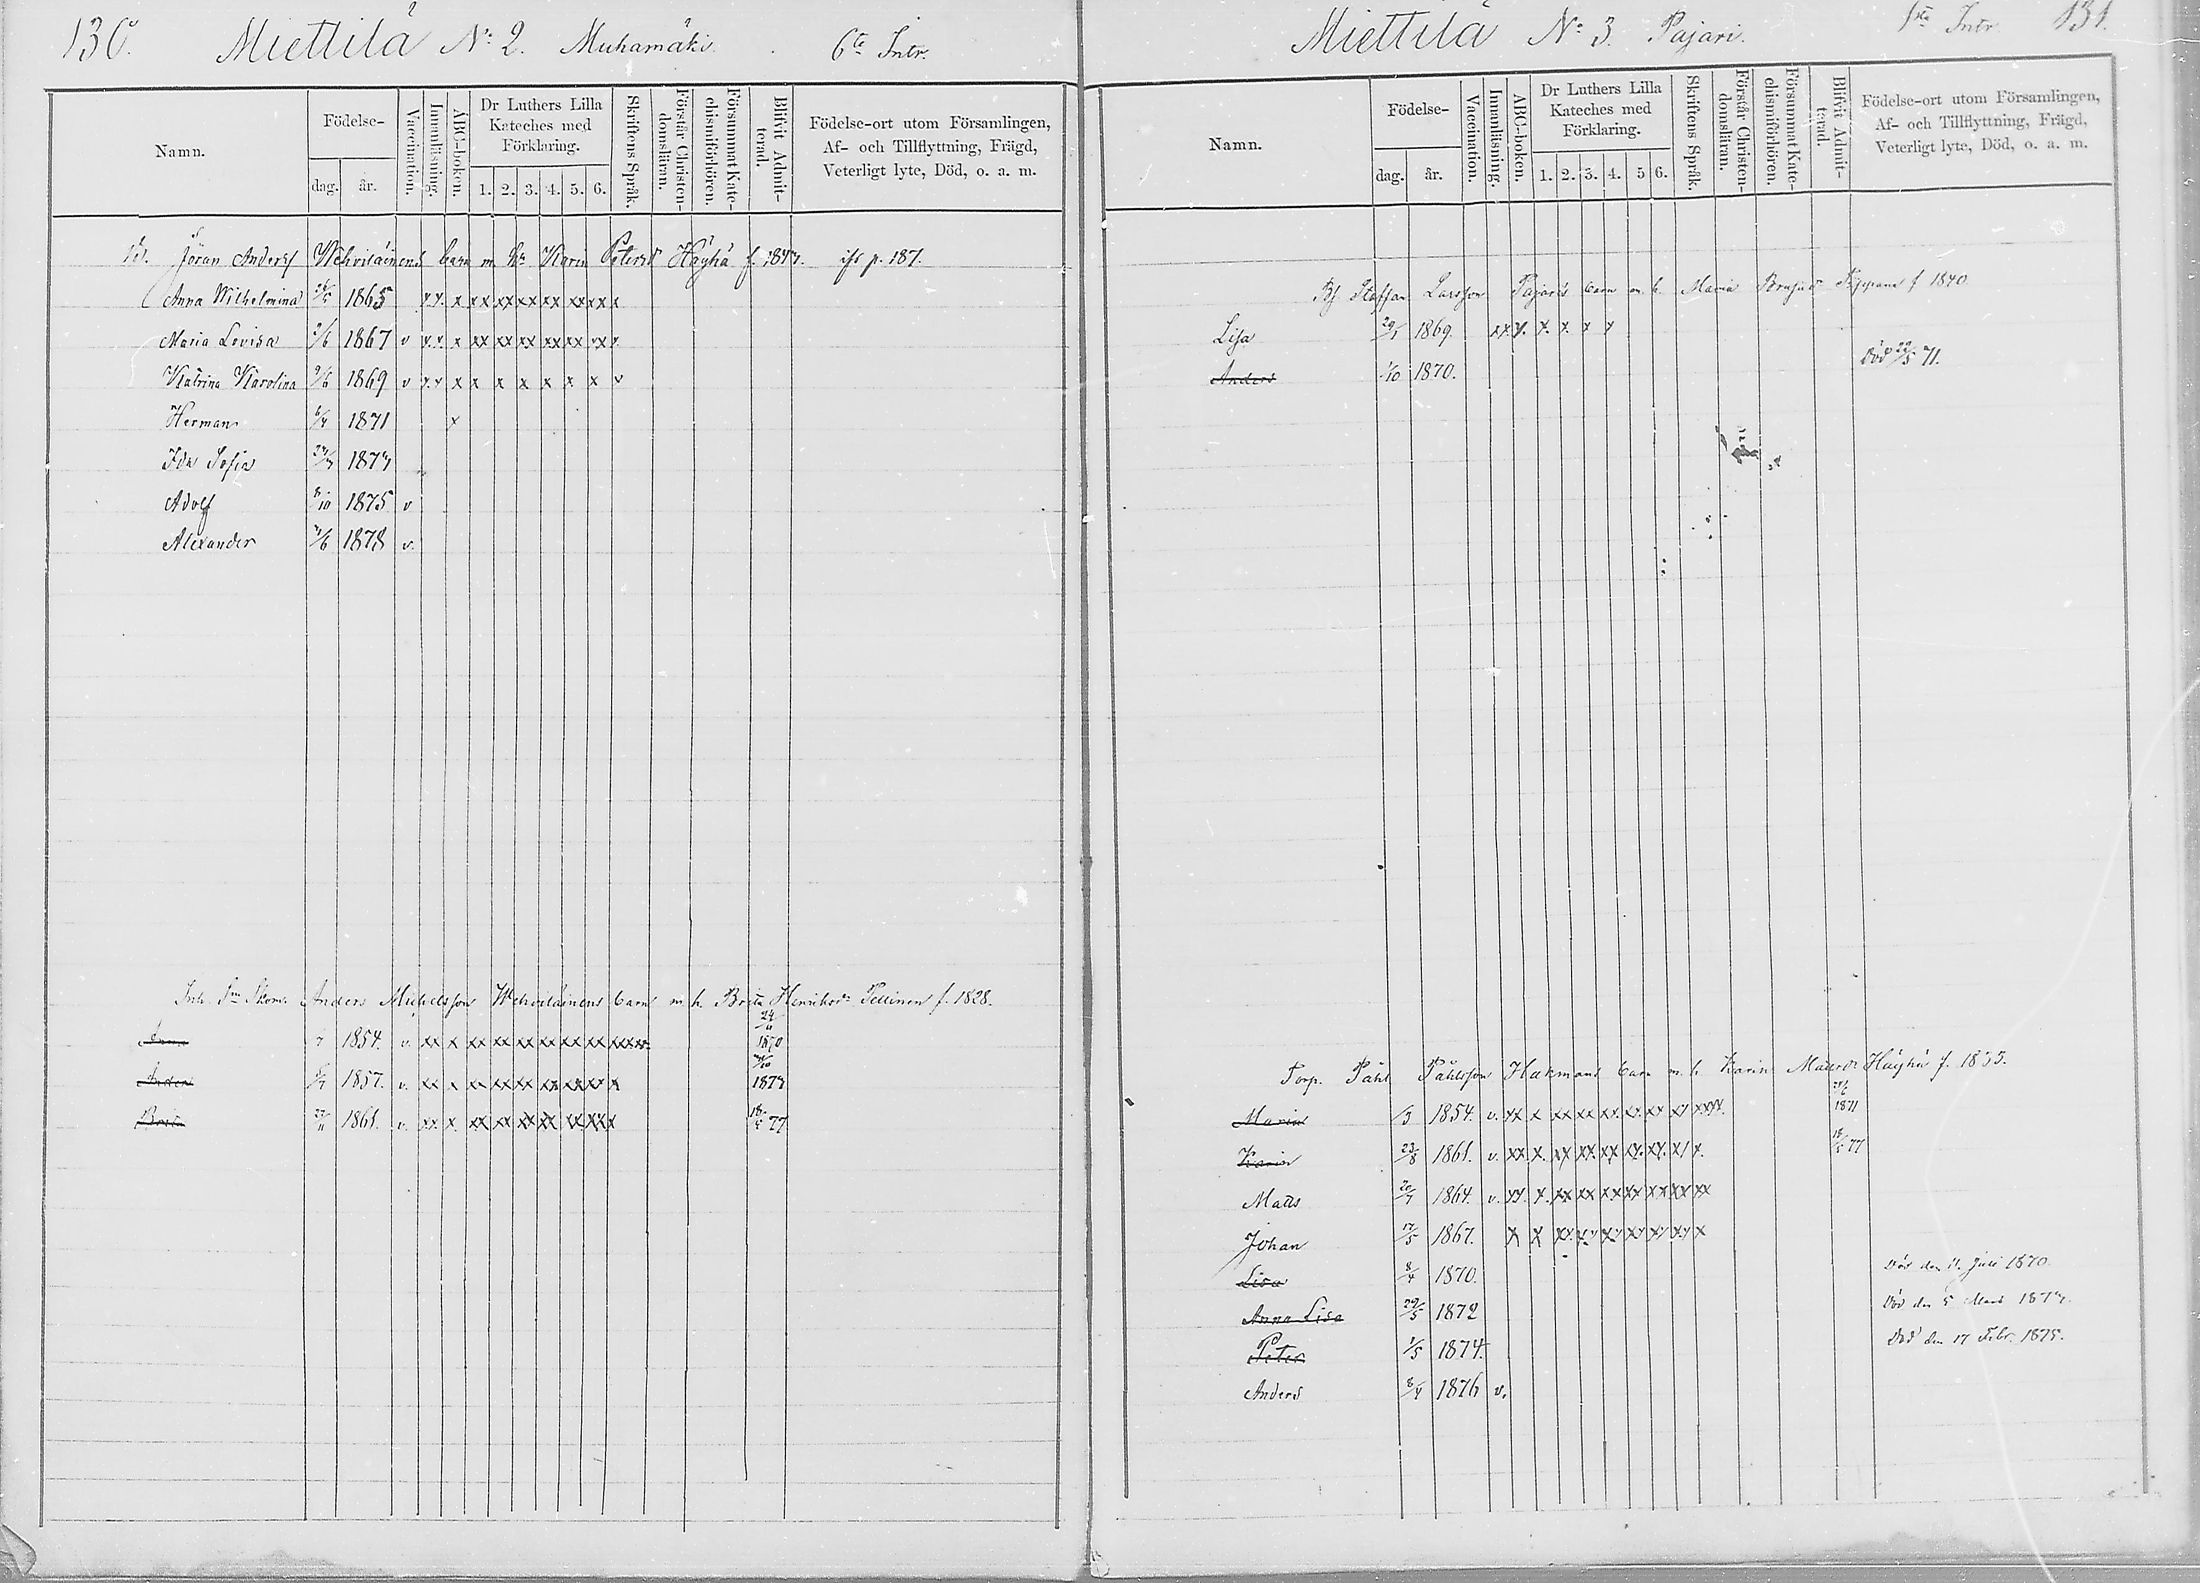 130. Miettilä No 2. Muhamäki. 6te Intr.
Namn. Födelse- dag. år. Vaccination. Innanläsning. ABC-boken. Dr Luthers Lilla Kateches med Förklaring. 1. 2. 3. 4. 5. 6. Skriftens Språk. Förstår Christen-domsläran. Försummat Kate-chismiförhören. Blifvit Admit-terad. Födelse-ort utom Församlingen, Af- och Tillflyttning, Frägd, Veterligt lyte, Död, o. a. m.
Jöran Anderss Wehviläinens barn m. h. Karin Petersdr Häyhä f. p. 187.
Anna Wilhelmina 1865 x xx xx xx xx xx xx x
Maria Lovisa 2/6 1867 v x xx xx xx xx xx xx x
Katrina Karolina 1869 v x x x x x x x x v
Herman 6/4 1871 x
Ida Sofia
Adolf 8/10 1875 v
Alexander 1878 v.
Anders Michelsson Wehviläinens barn m. h. Brita Henriksdr Pellinen f. 1828.
Anna 1854. v. xx x xx xx xx xx xx xx xxxx 24/11 1870
Anders 1857. v. xx x xx xx xx xx xx xx x
Brita 27/11 1861. v. xx x xx xx xx xx xx xx x 18/5 77
Miettilä No 3. Pajari. 1sta Intr. 131.
Namn. Födelse- dag. år. Vaccination. Innanläsning. ABC-boken. Dr Luthers Lilla Kateches med Förklaring. 1. 2. 3. 4. 5 6. Skriftens Språk. Förstår Christen-domsläran. Försummat Kate-chismiförhören. Blifvit Admit-terad. Födelse-ort utom Församlingen, Af- och Tillflyttning, Frägd, Veterligt lyte, Död, o. a. m.
Staffan Larsson Pajaris barn m. h. Maria f 1840
Lisa 29/1 1869. xx x. x. x x x
Anders 1/10 1870. Död 22/5 71.
Torp. Påhl Påhlsson Hakmans barn m. h. Karin Matsdr Häyhä f. 1833.
Maria 1854. v. xx x xx xx xx xx xx xx xxxx. 1871
Karin 23/8 1861. v. xx x. xx xx xx xx xx xx x. 18/5 77
Mats 20/7 1864. v. xx. x. xx xx xx xx xx xx xx
Johan 17/5 1867. x x xx xx xx xx xx xx x
Lisa 8/4 1870. Död den Juli 1870.
Anna Lisa 29/5 1872 Död den 5 Mars
Peter 1/5 1874. Död den 17 Febr. 1875.
Anders 8/4 1876 v.